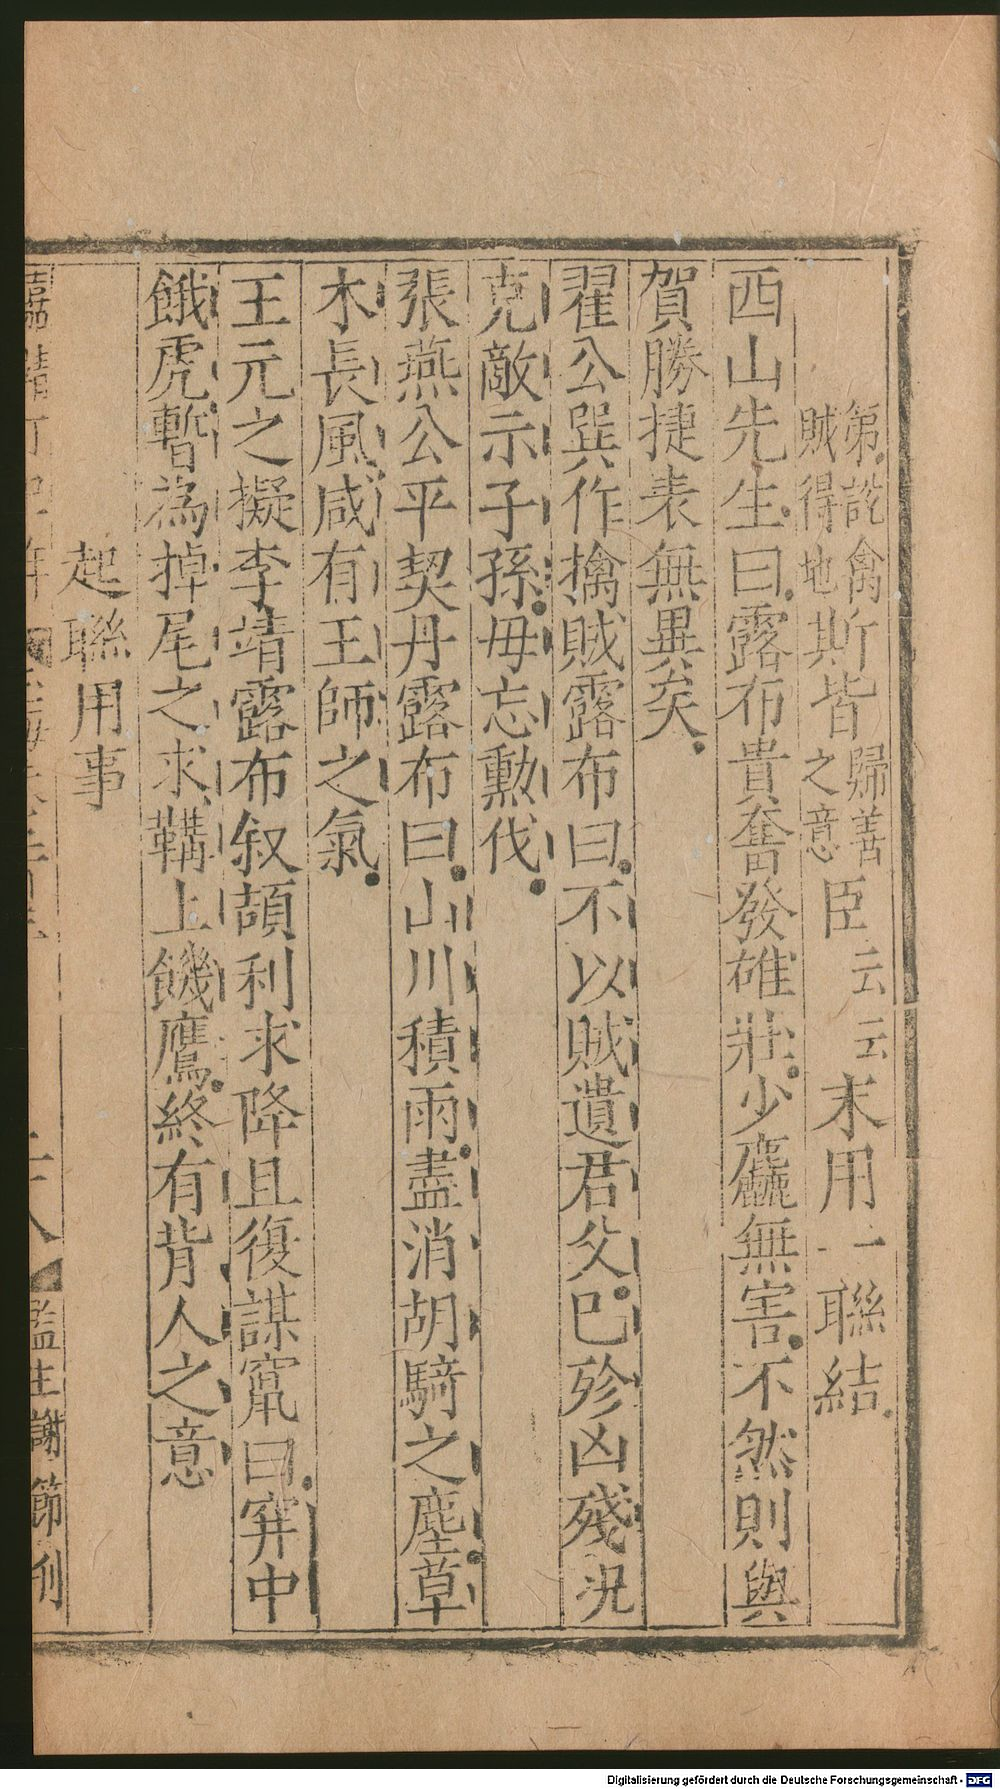 第說禽賊得地斯皆歸善之意臣云云末用一聯結
西山先生曰露布貴奮發雄壯少麤無害不然則與
賀勝捷表無異矣
翟公巽作擒賊露布曰不以賊遺君父巳殄凶殘況
克敵示子孫毋忘勳伐
張燕公平契丹露布曰山川積雨盡消胡騎之塵草
木長風咸有王師之氣
王元之擬李靖露布叙頡利求降且復謀竄曰穽中
餓虎暫為掉尾之求鞲上饑鷹終有背人之意
起聯用事
監生謝節刊
Digitalisierung gefördert durch die Deutsche Forschungsgemeinschaft - DFG